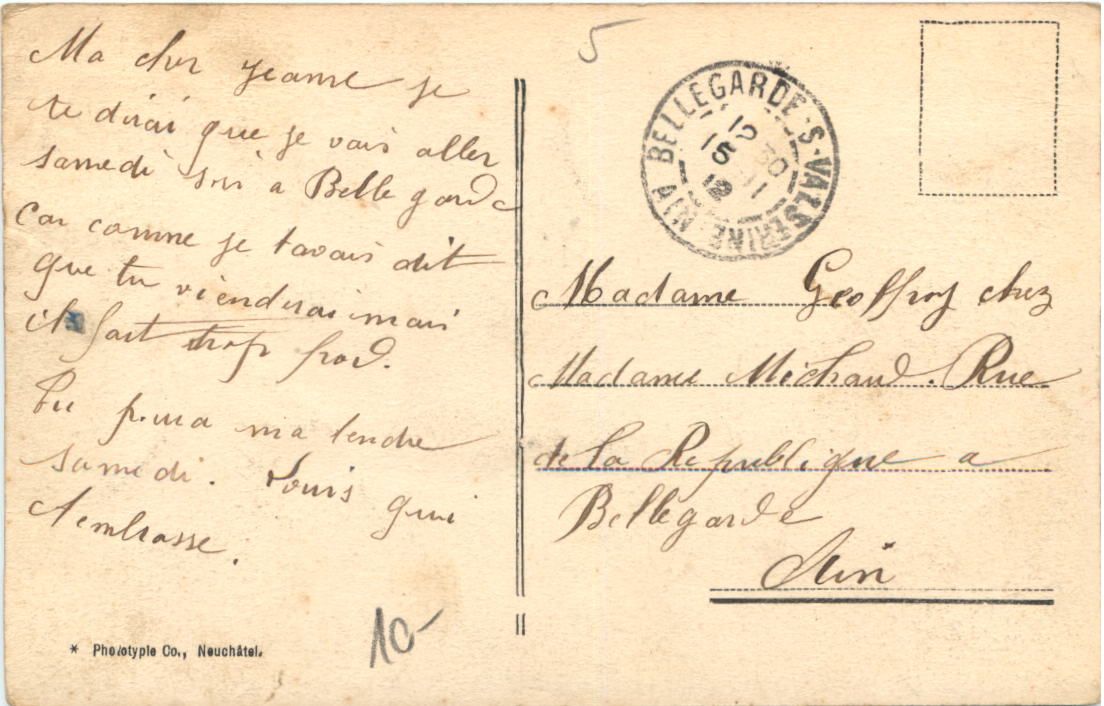 Ma cher Jeanne je
te dirai que je vais aller
samedi soir a Bellegarde
car comme je tavais dit
que tu viendrai mais
il fait trop froid.
Tu ma tendre
samedi. Louis qui
t'embrasse.
* Phototypie Co., Neuchâtel.
5
10-
BELLEGARDE-S-VALSERINE AIN
12 30
15 - 11
12
Madame Geoffroy chez
Madame Michaud. Rue
de la Republique a
Bellegarde
Ain